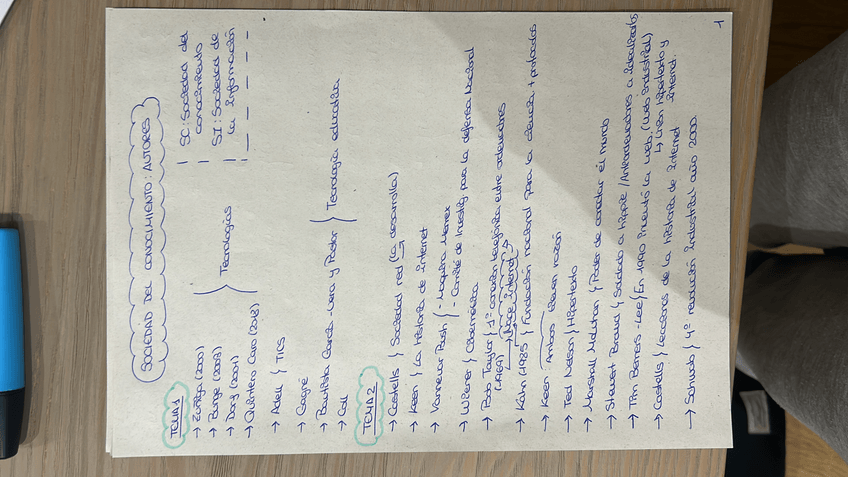 SOCIEDAD DEL CONOCIMIENTO: AUTORES
SC: Sociedad del conocimiento
SI: Sociedad de la información
TEMA 1
→ Zuñiga (2000)
→ Bunge (2003)
→ Dary (2004)
→ Quintero Caro (2018)
} Tecnologías
→ Adell } TICS
→ Gagné
→ Bautista García-Vera y Pastor
→ Cal
} Tecnología educativa
TEMA 2
→ Castells } Sociedad red (la desarrolla)
→ Keen } La historia de internet
→ Vannevar Bush } - Maquina Memex
- Comité de Investig para la defensa Nacional
→ Wiener } Cibernética
→ Bob Taylor } 1º conexión telefónica entre ordenadores
(1969) → Nace internet
→ Kahn (1985 } Fundación nacional para la ciencia + protocolos
→ Keen: Ambos tienen razón
→ Ted Nelson } Hipertexto
→ Marshall Mcluhan } Poder de conectar el mundo
→ Stewart Brand } Soldado a hippie / Antiordenadores a idealizarlos
→ Tim Berners-Lee } En 1990 inventó la web, (Web Industrial)
↳ Unión hipertexto y internet.
→ Castells } Lecciones de la historia de internet
→ Schwab } 4º revolución industrial año 2000.
1